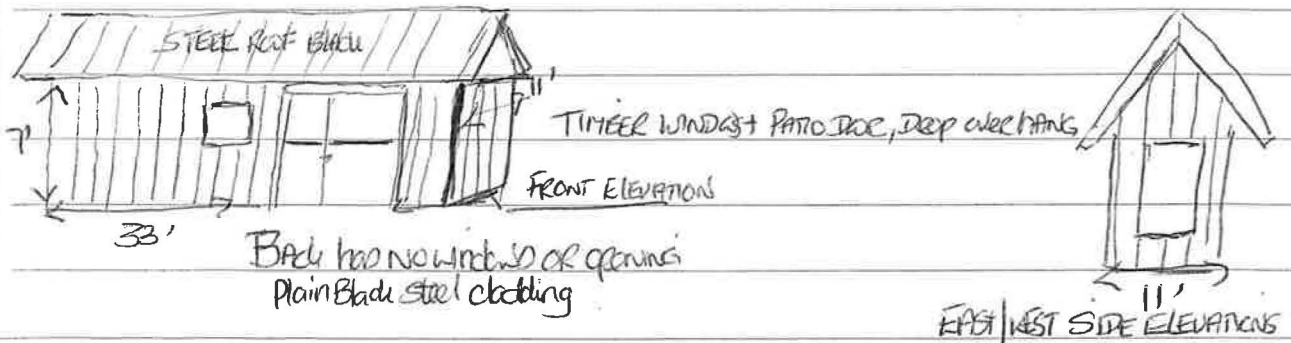 STEEL ROOF BLACK
11'
7'
TIMBER WINDOWS + PATIO DOOR, DEEP OVERHANG
FRONT ELEVATION
33'
BACK has NO windows OR opening
Plain Black steel cladding
11'
EAST/WEST SIDE ELEVATIONS